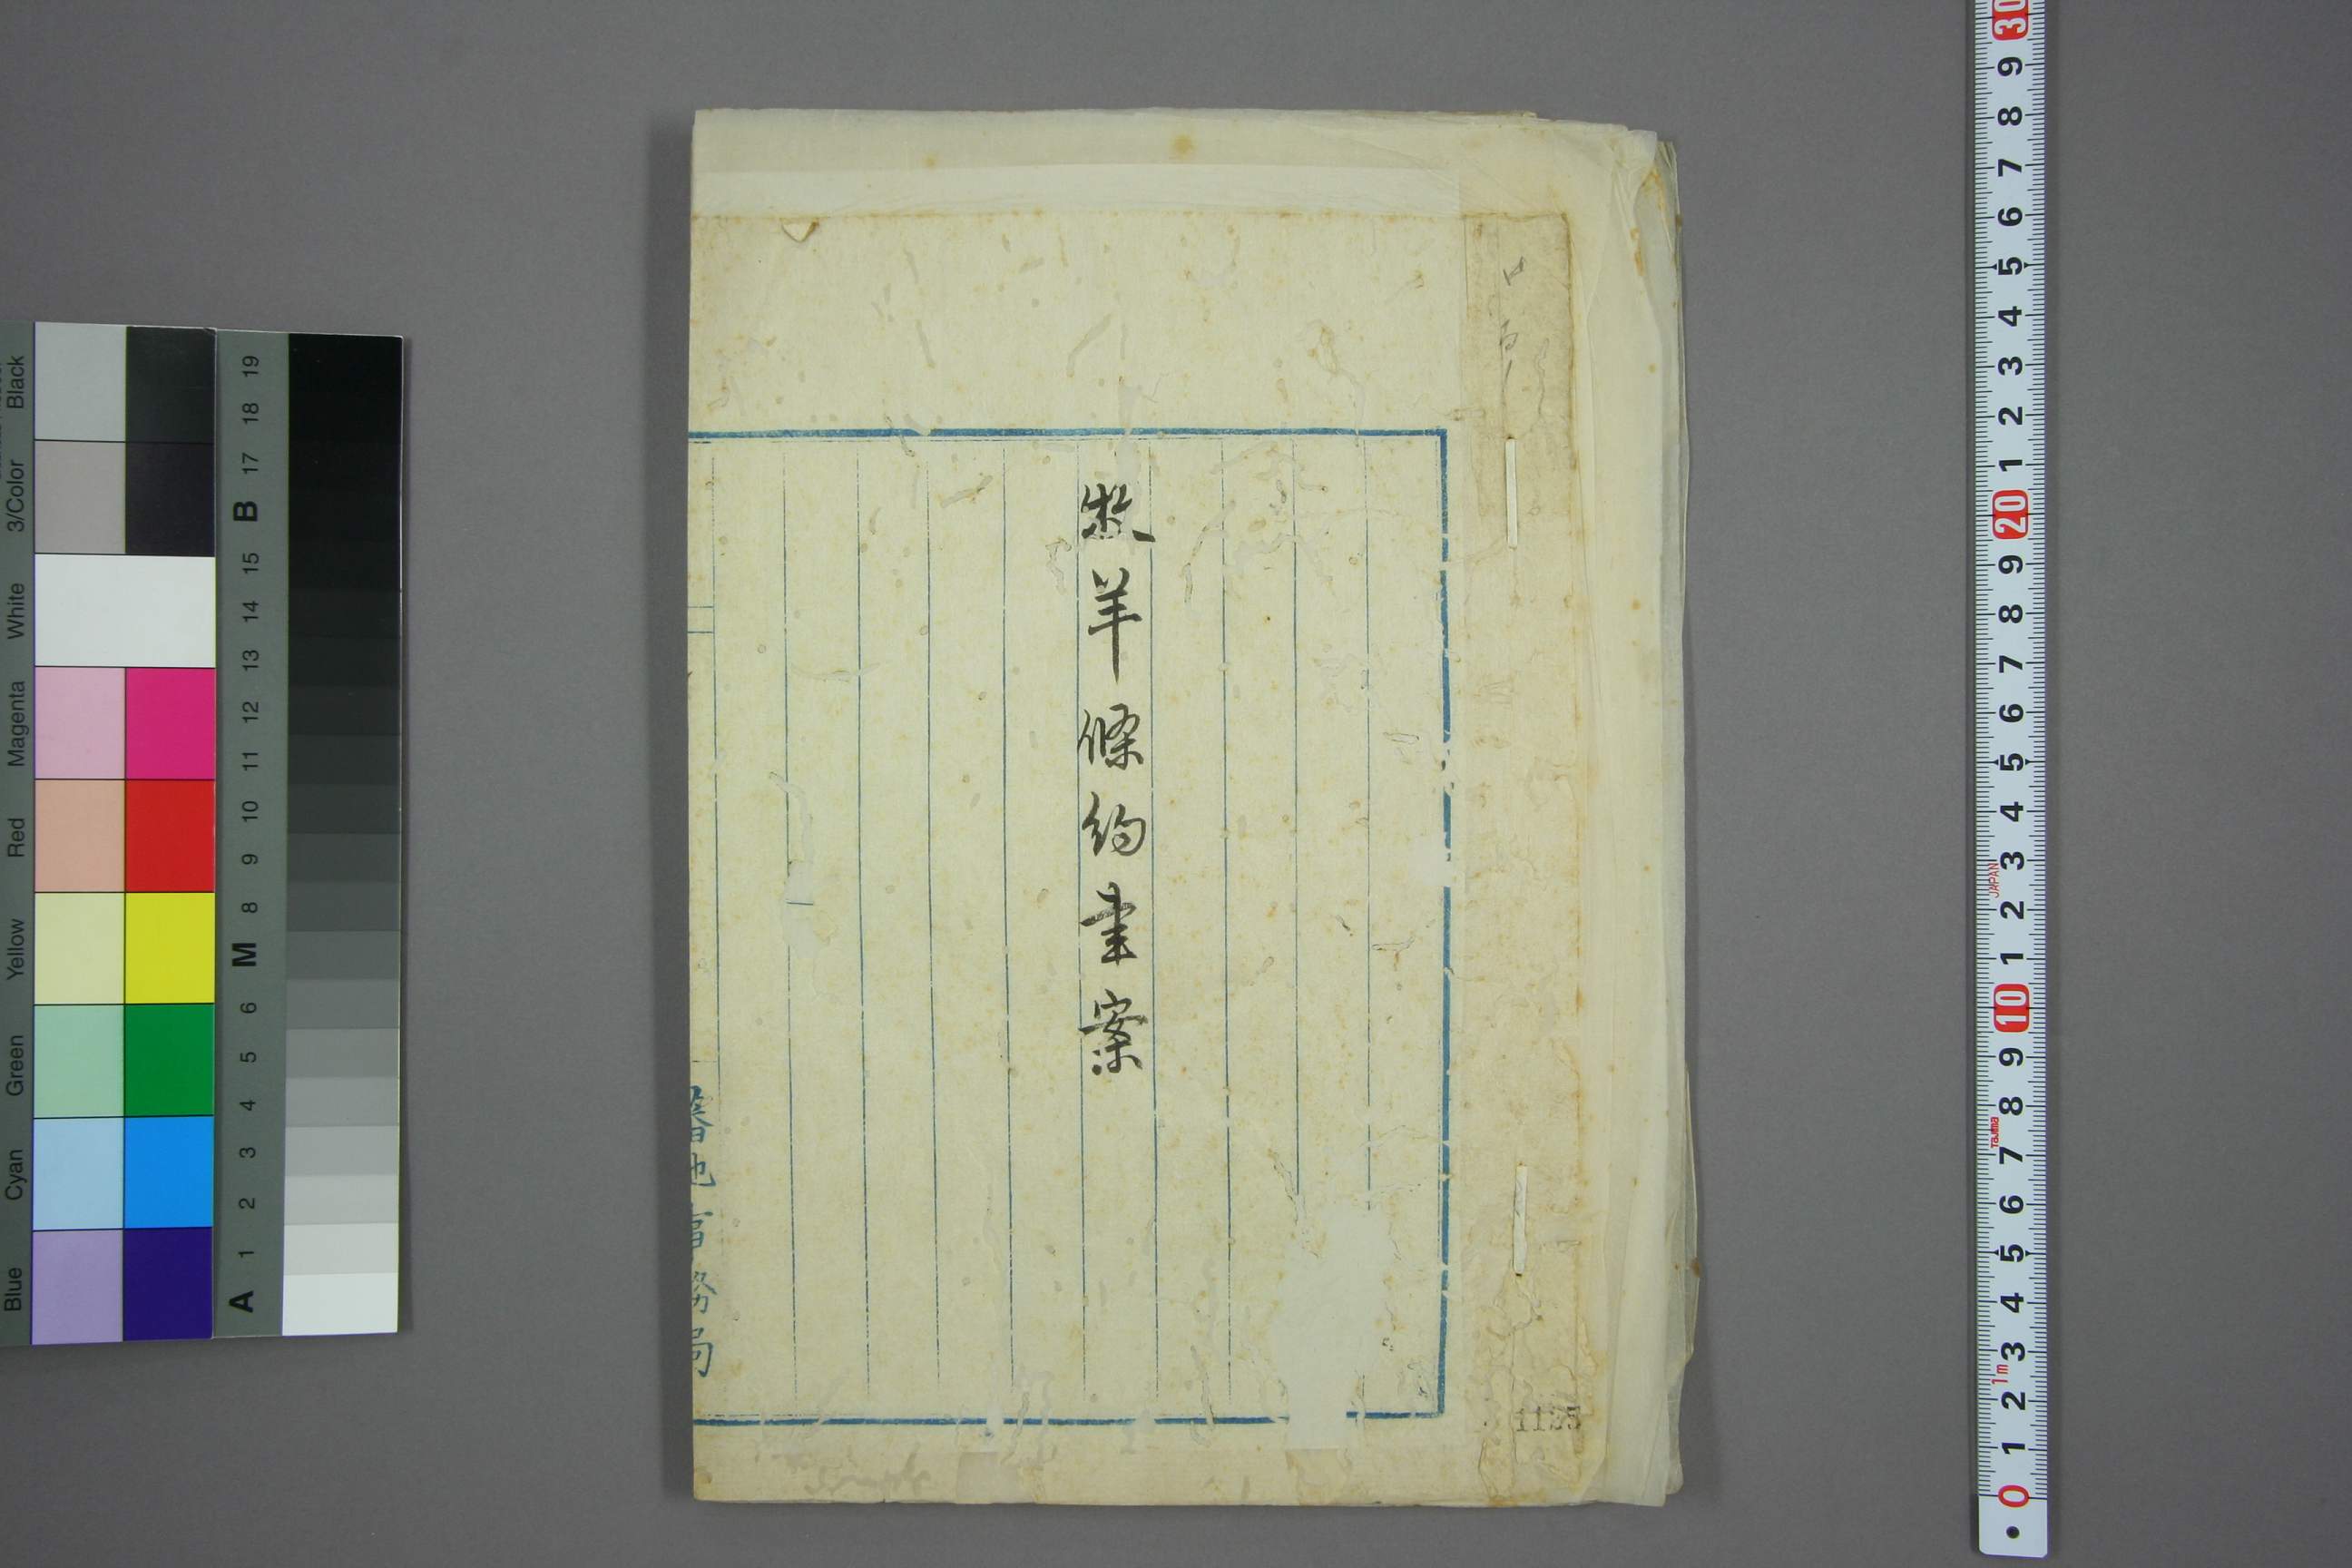 牧羊條約書案
蕃地事務局
1135
30
9
8
7
6
5
4
3
2
1
20
9
8
7
6
5
4
3
JAPAN
2
1
10
9
8
Tajima
7
6
5
4
3
1m
2
1
0
Black
3/Color
White
Magenta
Red
Yellow
Green
Cyan
Blue
19
18
17
B
15
14
13
12
11
10
9
8
M
6
5
4
3
2
1
A